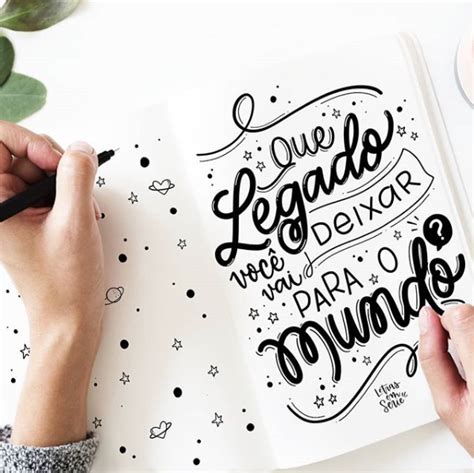 Que
Legado
você
vai DEIXAR
PARA O
Mundo?
Letras
em
Série